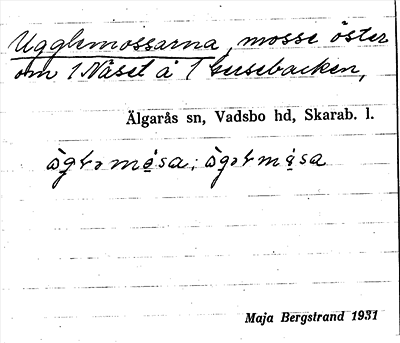 Ugglemossarna, mosse öster
om 1 Näset å 1 Gusebacken,
Älgarås sn, Vadsbo hd, Skarab. l.
Maja Bergstrand 1931